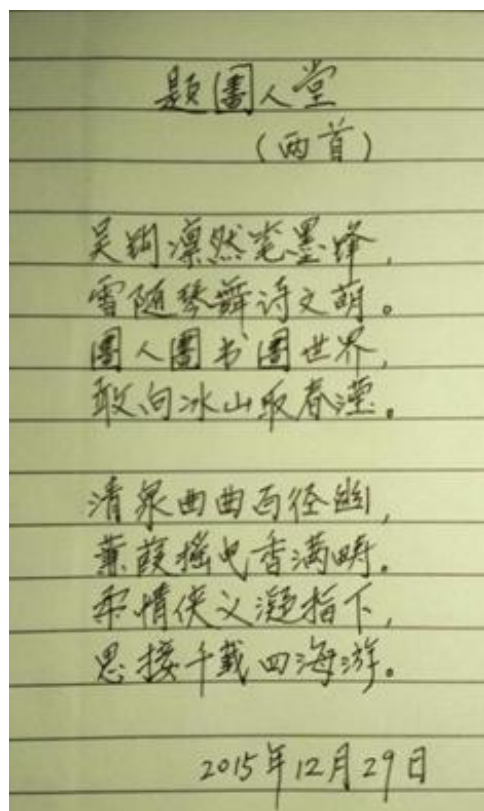 题圕人堂
(两首)
吴钩凛然笔墨锋,
雪随琴舞诗文萌。
圕人圕书圕世界,
敢向冰山取春滢。
清泉曲曲百径幽,
蒹葭摇曳香满畴。
柔情侠义凝指下,
思接千载四海游。
2015年12月29日